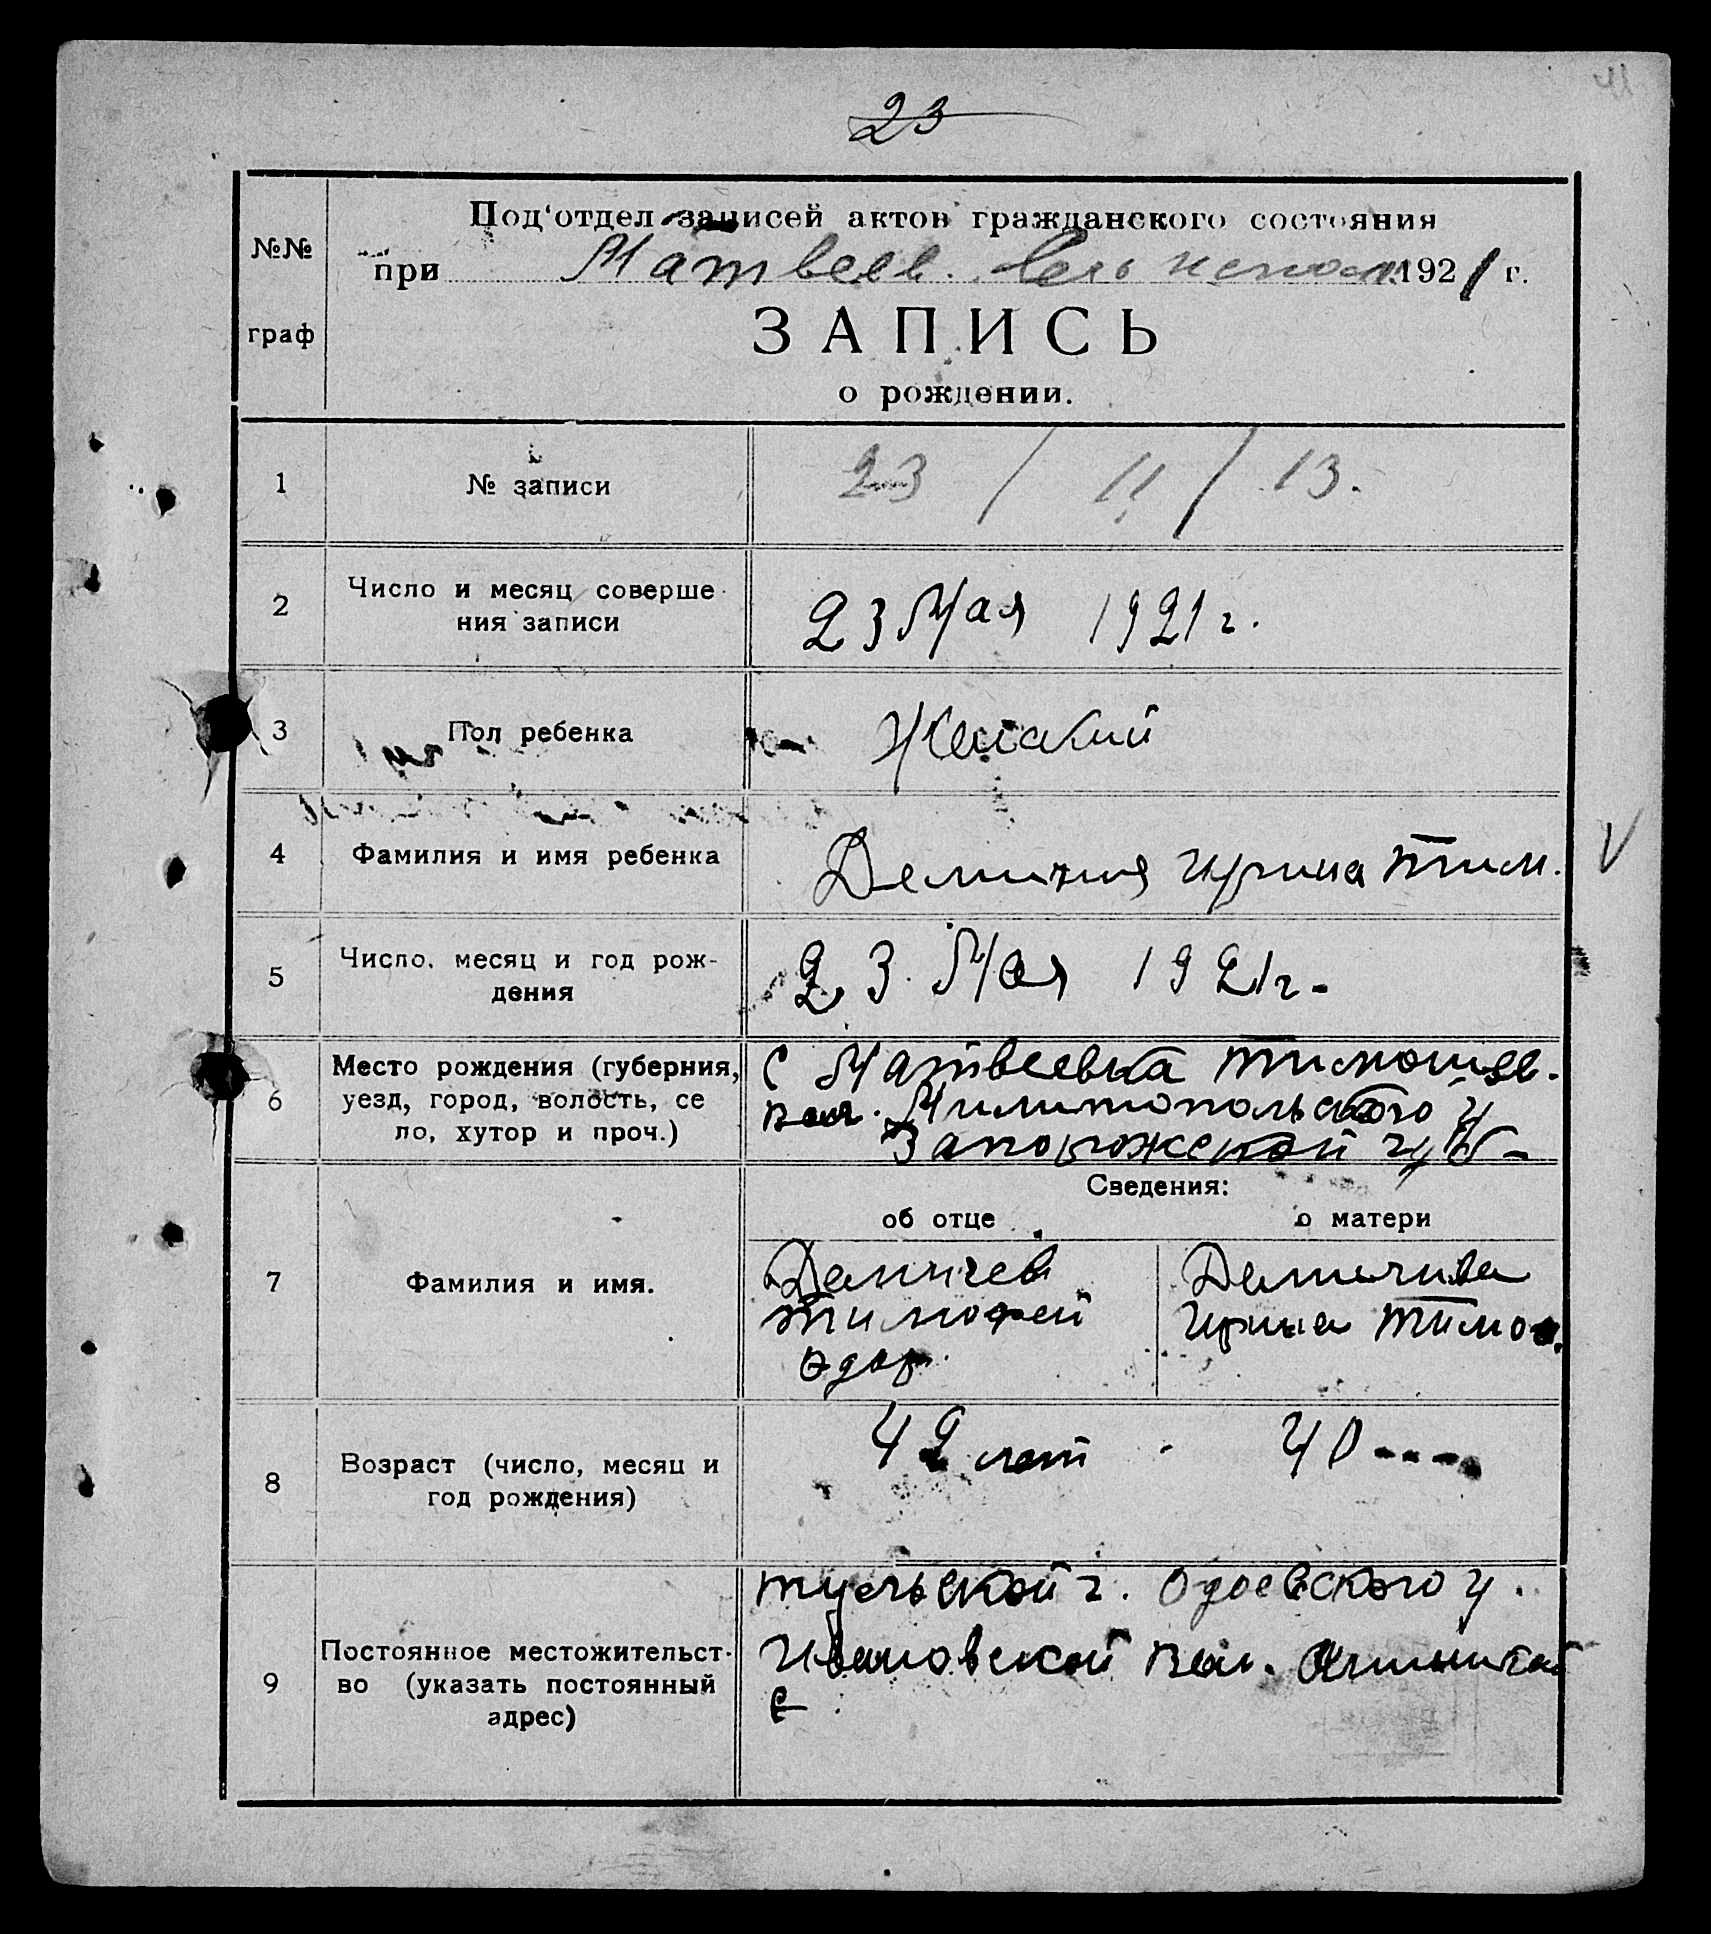 23
Под'отдел записей актов гражданского состояния
№№
при Матвеев. Сель исполк. 1921 г.
граф
ЗАПИСЬ
о рождении.
1 № записи 23 / 11 / 13.
2 Число и месяц соверше
ния записи 23 Мая 1921 г.
3 Пол ребенка Женский
4 Фамилия и имя ребенка Ирина Тим.
V
5 Число, месяц и год рож-
дения 23 Мая 1921 г-
6 Место рождения (губерния,
уезд, город, волость, се
ло, хутор и проч.)
с Матвеевка Тимошев.
вол. Милитопольского У
Запорожской губ-
Сведения:
об отце о матери
7 Фамилия и имя.
Тимофей Ирина
8 Возраст (число, месяц и
год рождения)
42 лет 40
9 Постоянное местожительст-
во (указать постоянный
адрес)
тульской г. Одоевского у.
Ивановской вол.